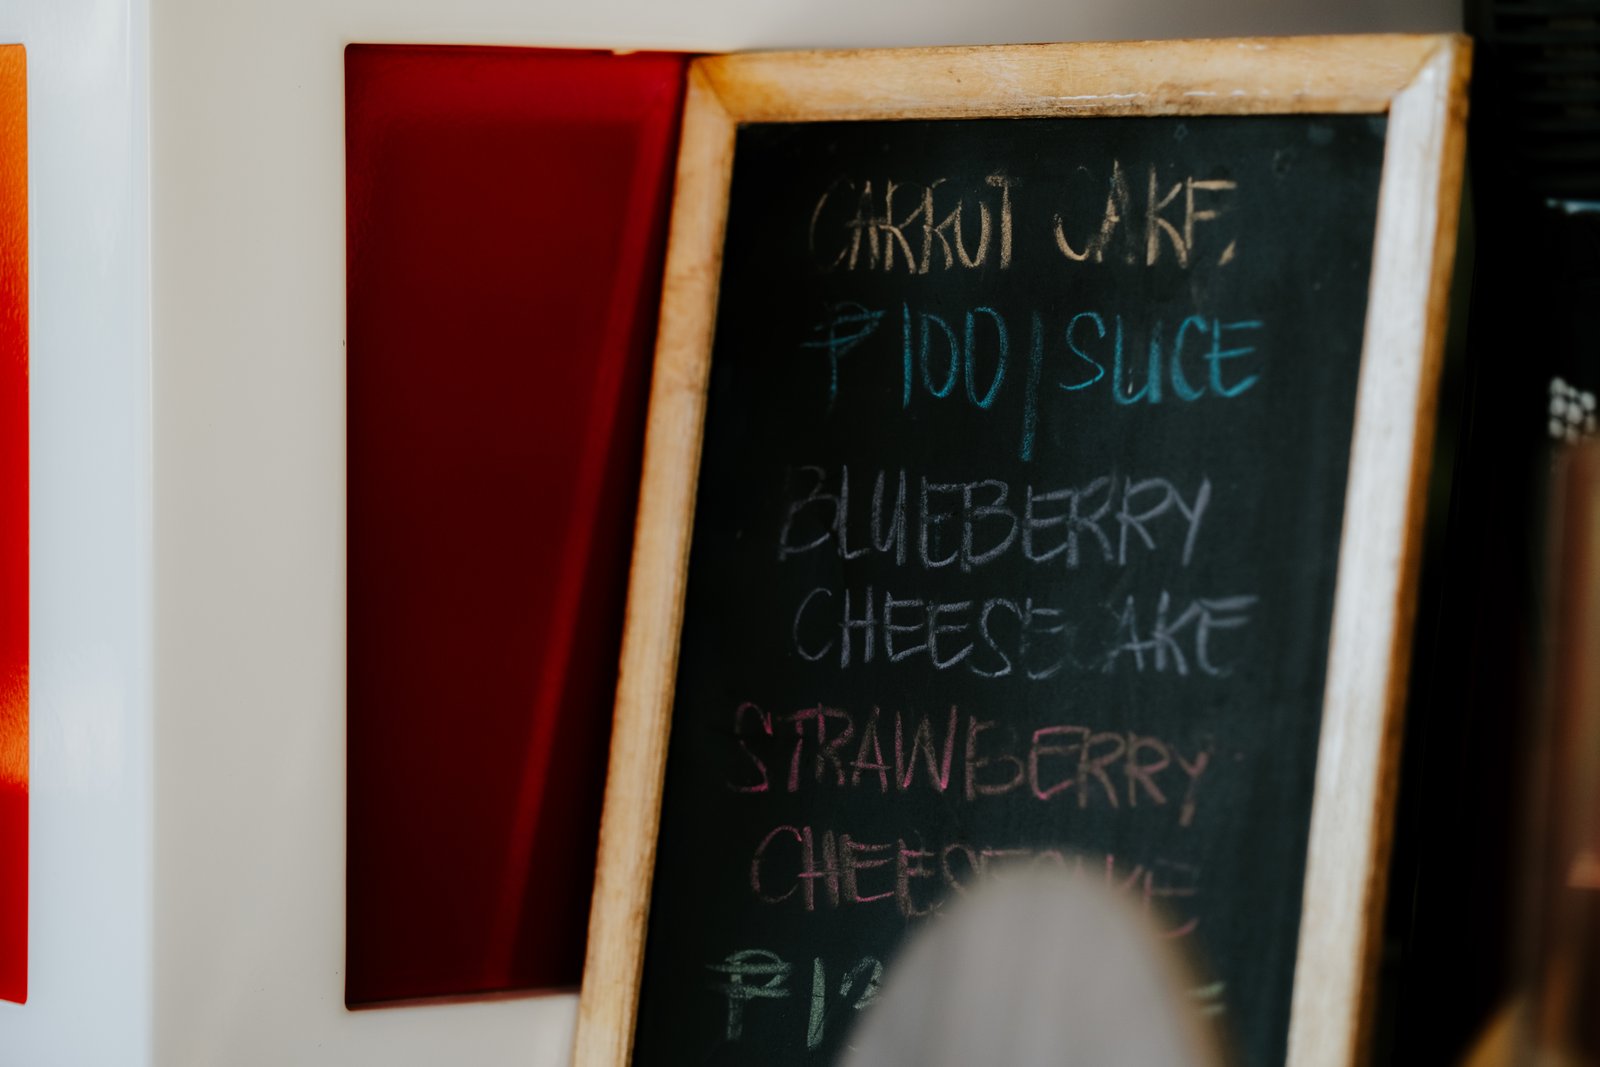 CARROT CAKE
₱100/SLICE
BLUEBERRY
CHEESECAKE
STRAWBERRY
CHEESECAKE